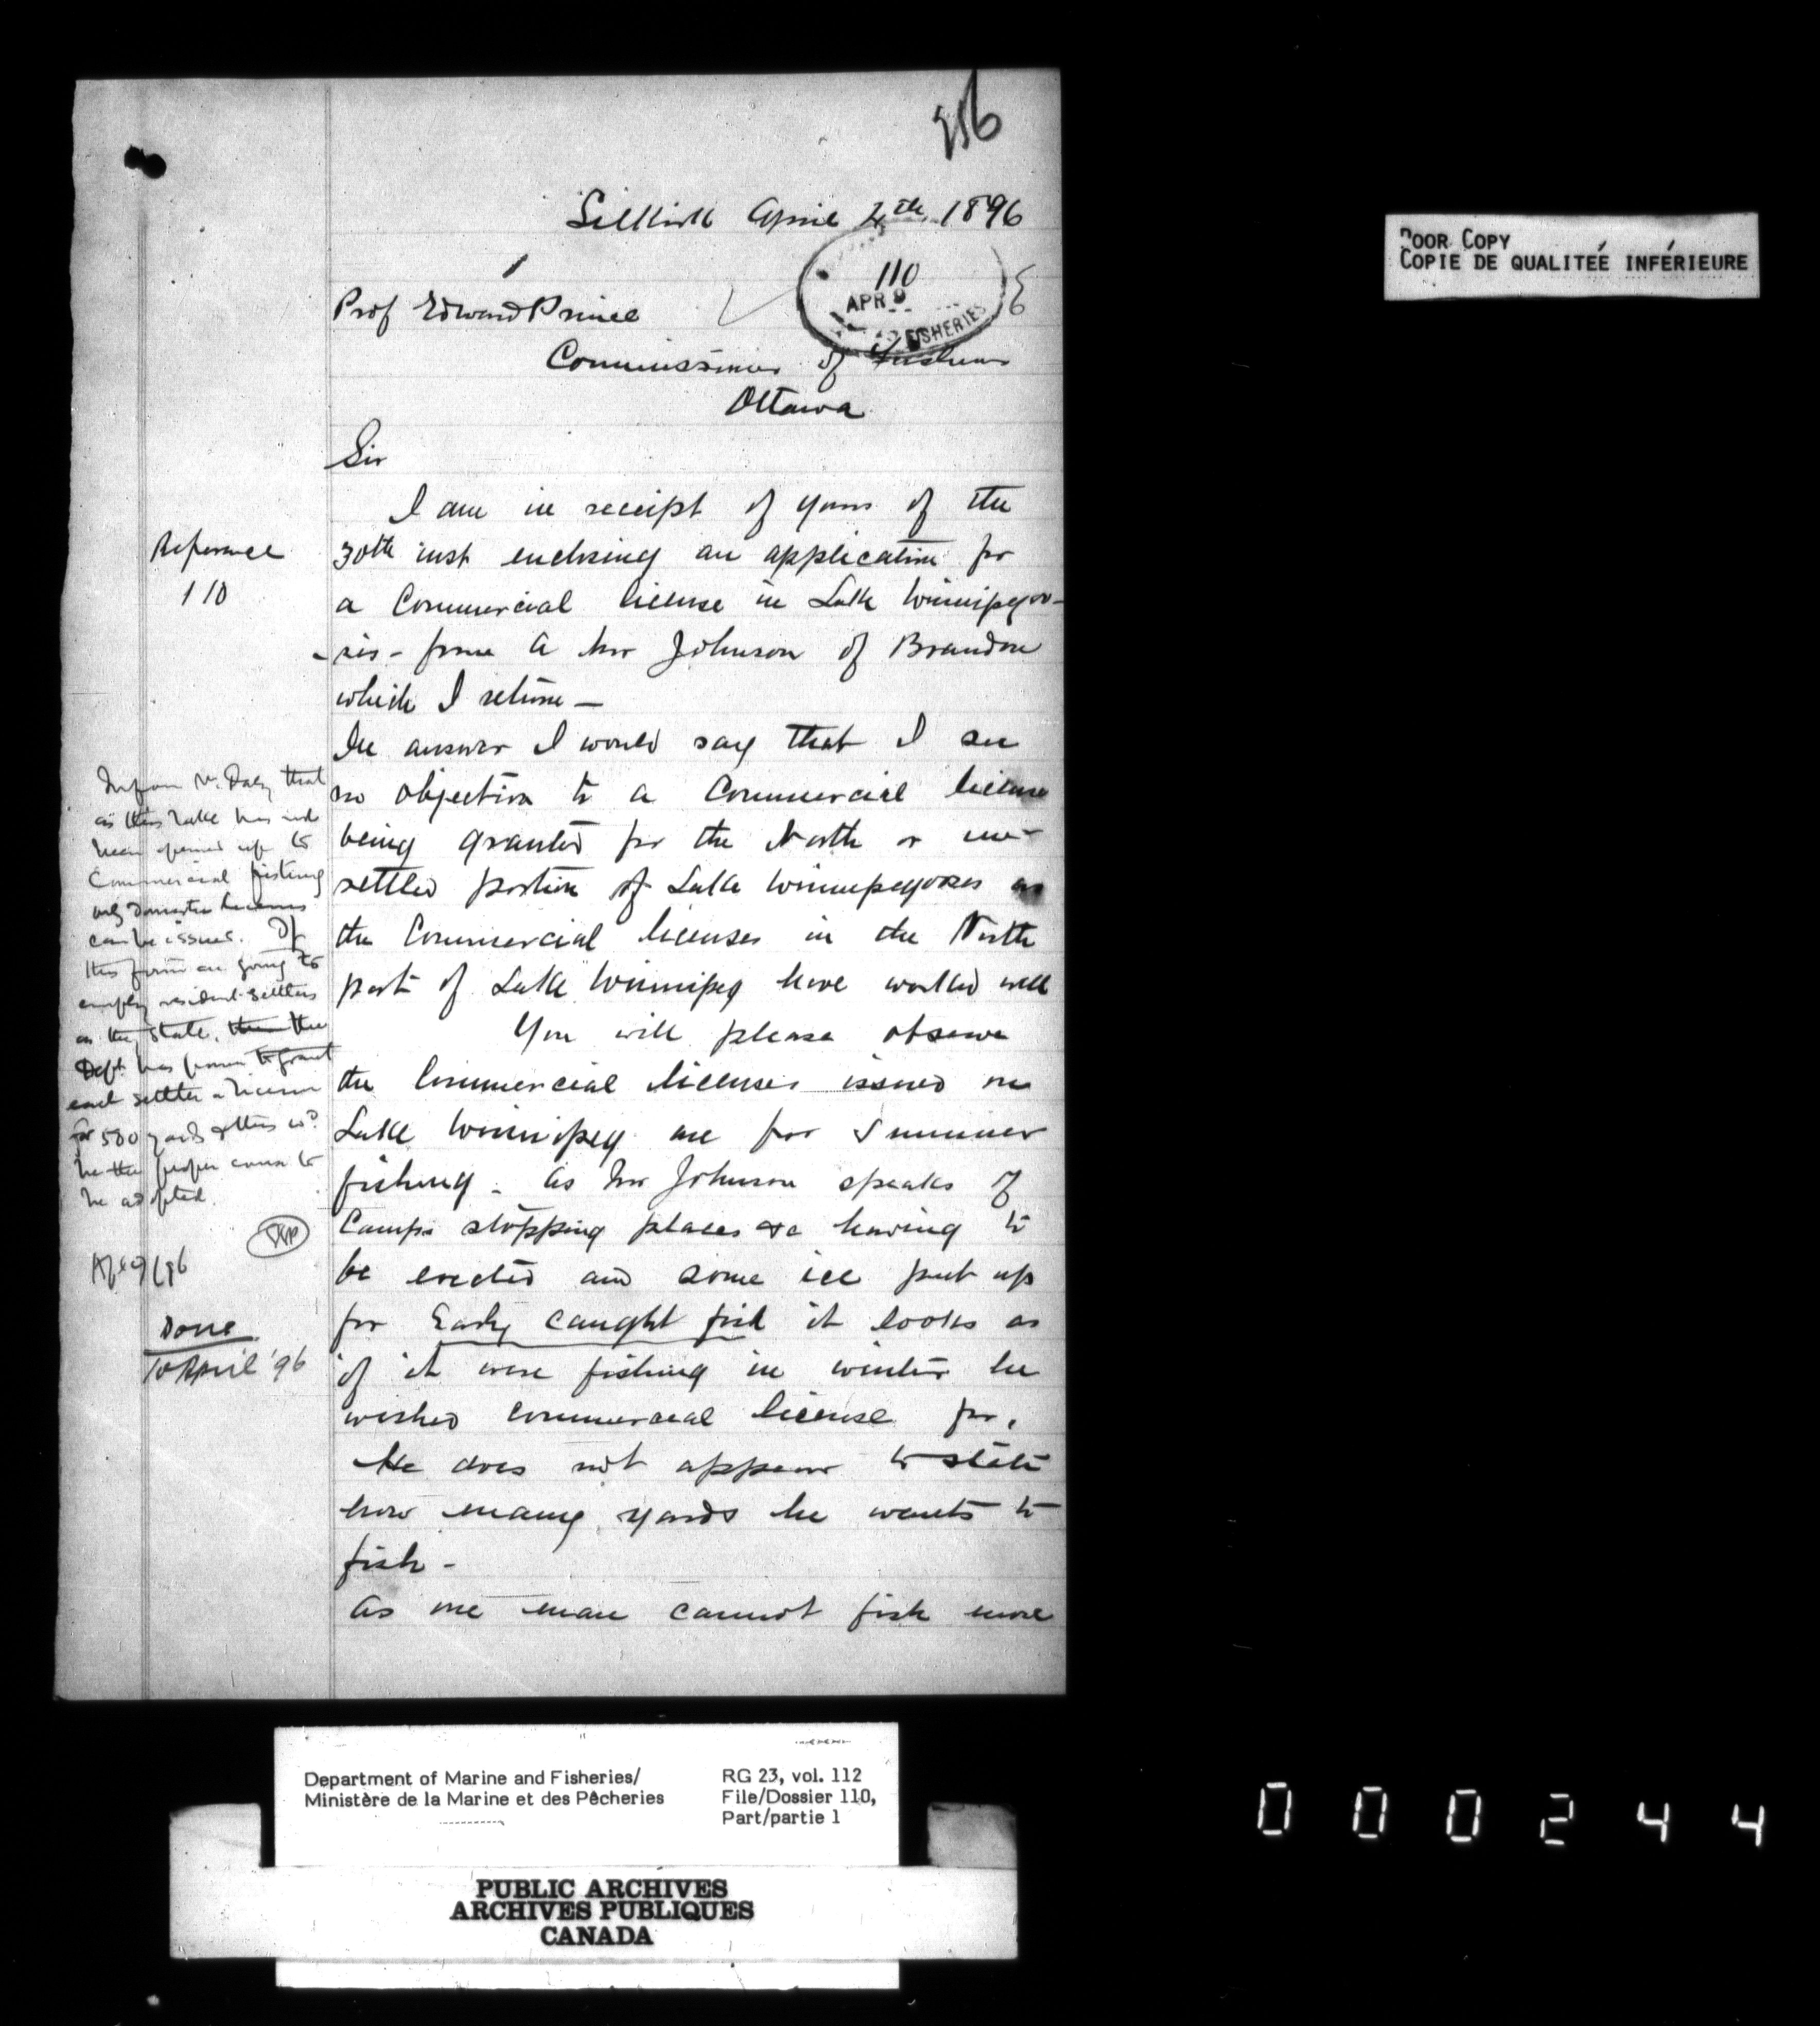 256
Selkirk April 4th 1896
110
APR 9
FISHERIES
Prof Edward Prince
Commissioner of Fisheries
Ottawa
Sir
I am in receipt of yours of the
Reference
110
30th inst enclosing an application for
a Commercial license in Lake Winnipegoo-
-sis - from a Mr Johnson of Brandon
which I return -
In answer I would say that I see
no objection to a Commercial license
being granted for the North or un-
settled portion of Lake Winnipegosis as
the Commercial licenses in the North
part of Lake Winnipeg have worked well
You will please observe
the Commercial licenses issued on
Lake Winnipeg are for Summer
fishing - as Mr Johnson speaks of
Camps stopping places &c having to
be erected and some ice put up
for Early caught fish it looks as
if it were fishing in winter he
wished commercial license for.
He does not appear to state
how many yards he wants to
fish -
As one man cannot fish more
Inform Mr. Daly that
as this Lake has not
been opened up to
Commercial fishing
only domestic licenses
can be issued. If
this firm are going to
employ resident settlers
as they state, then the
Dept. has power to grant
each settler a license
for 500 yards & this wd
be the proper course to
be adopted.
Ap 9/96
Done
10 April '96
POOR COPY
COPIE DE QUALITEÉ INFÉRIEURE
Department of Marine and Fisheries/
Ministère de la Marine et des Pêcheries
RG 23, vol. 112
File/Dossier 110,
Part/partie 1
PUBLIC ARCHIVES
ARCHIVES PUBLIQUES
CANADA
000244